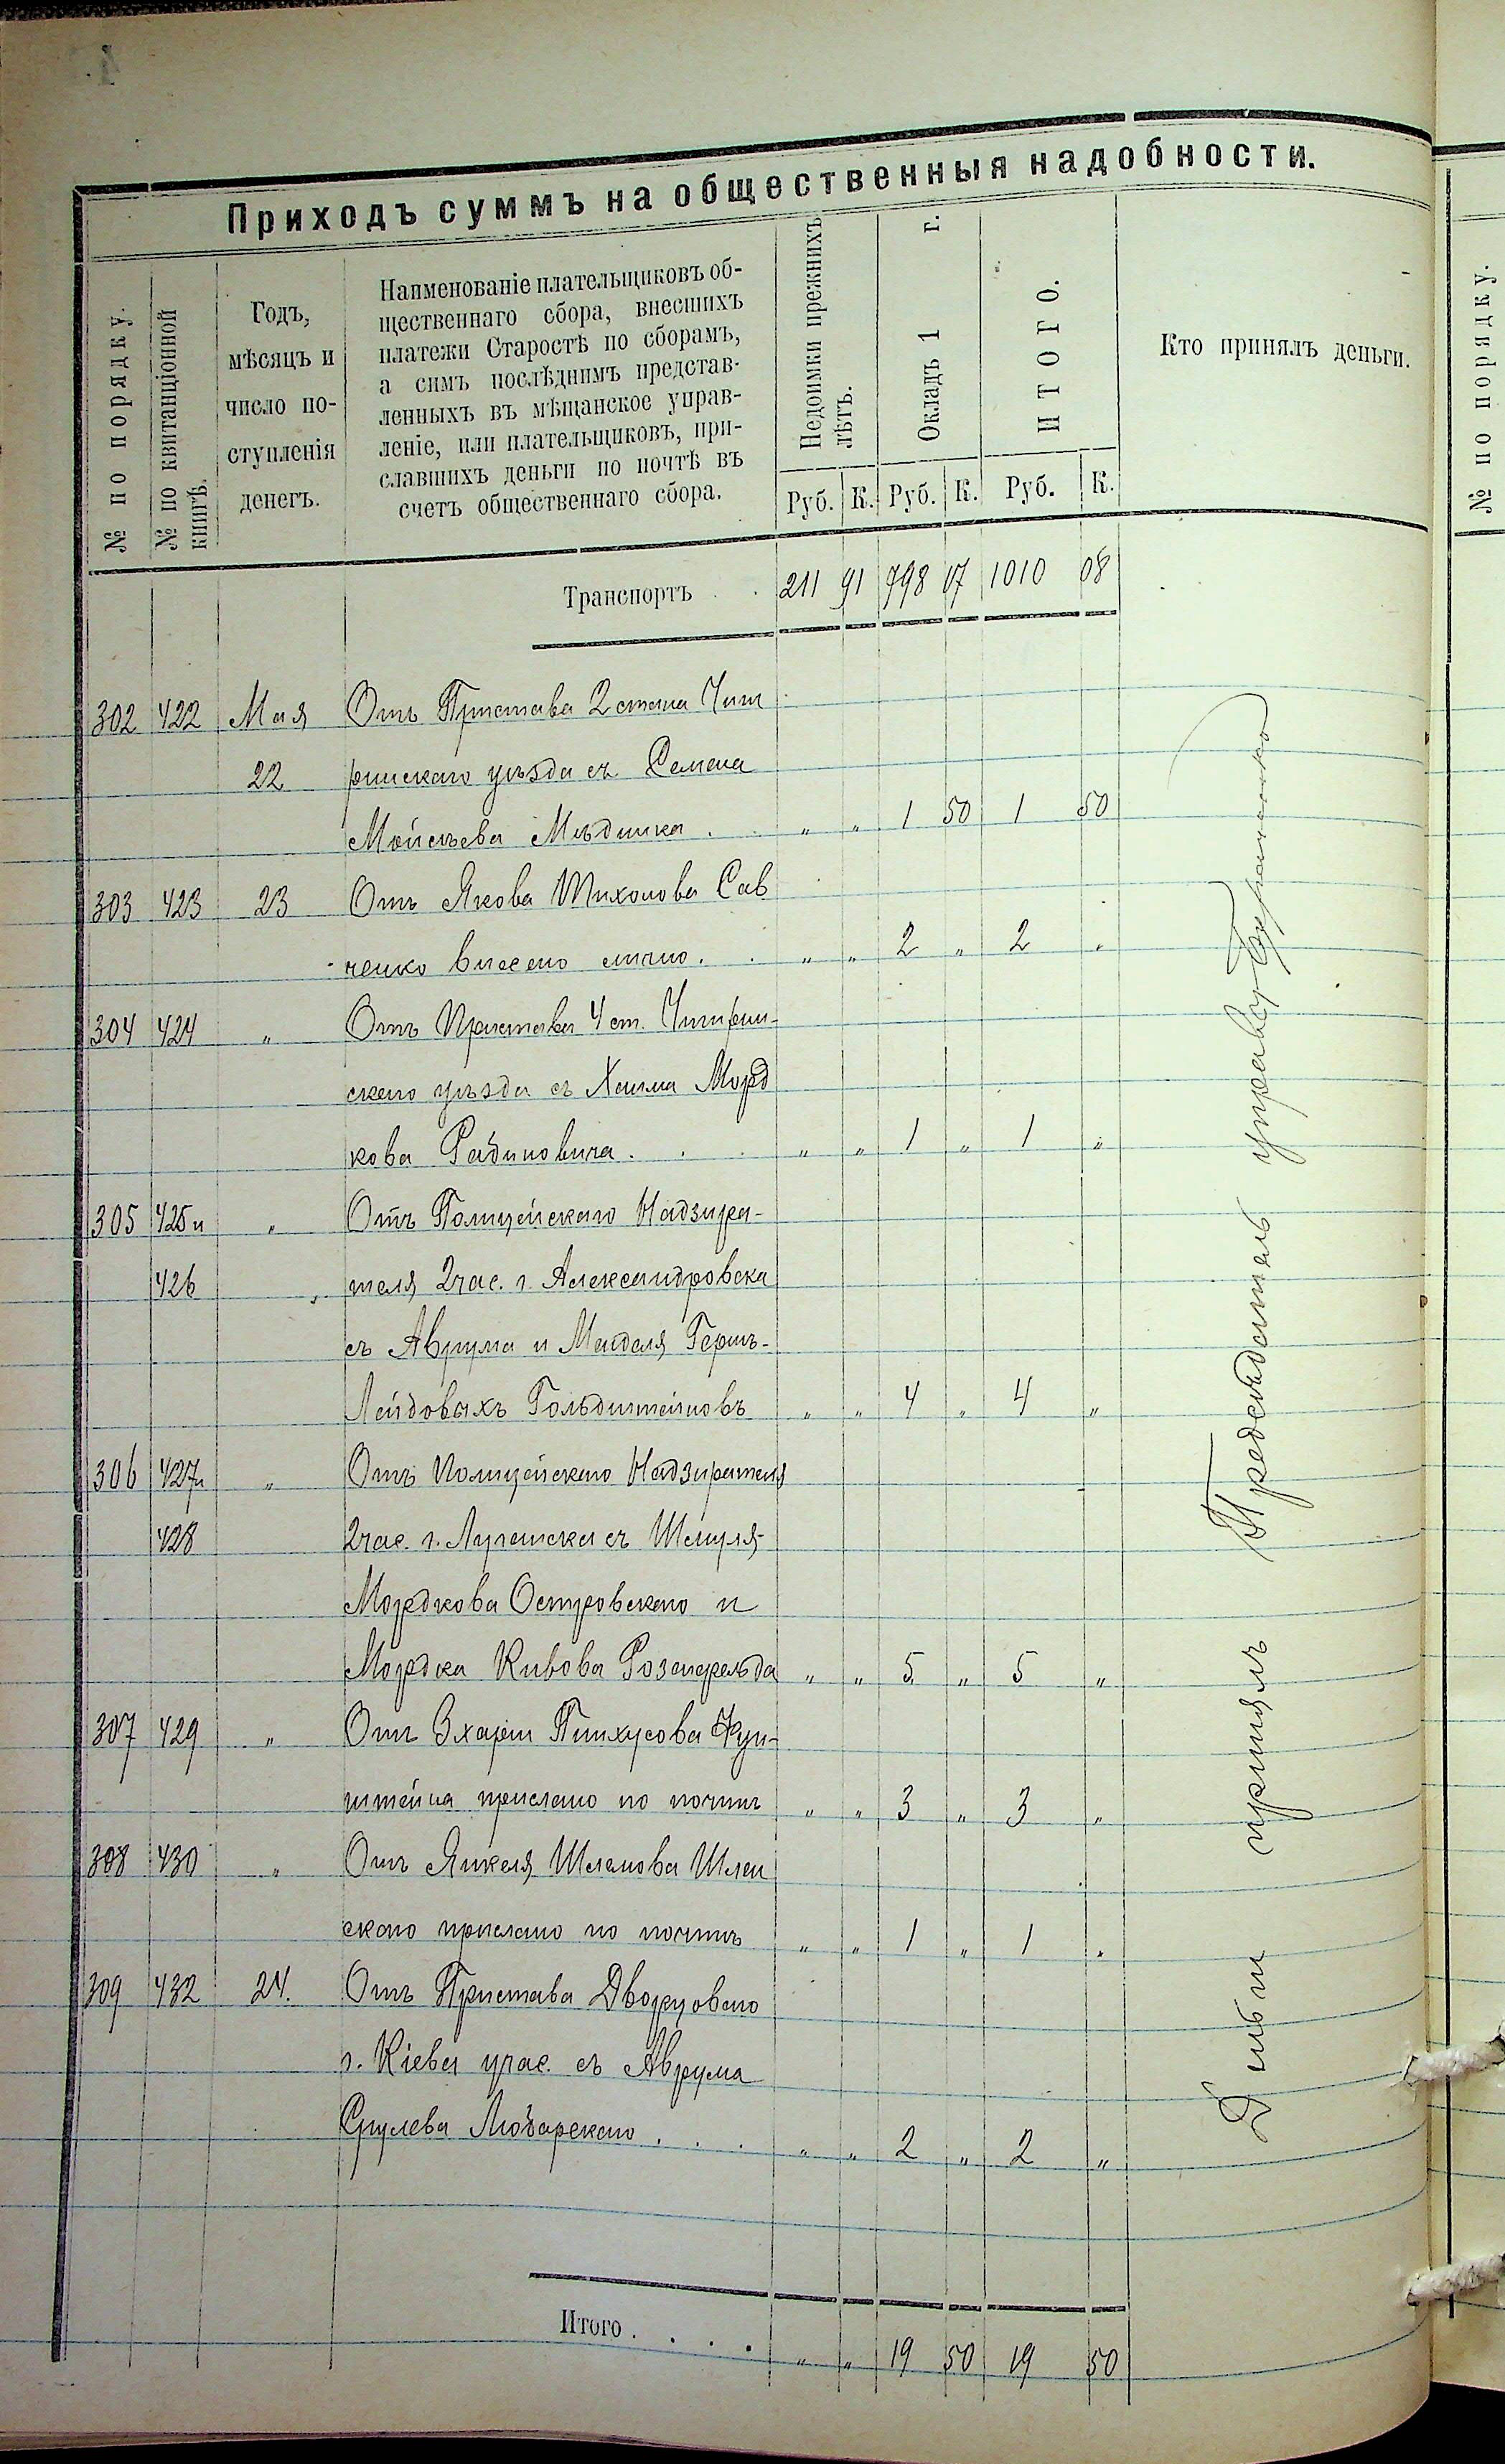 Приходъ суммъ на общественныя надобности.
№ по порядку.
№ по квитанціонной
книгѣ.
Годъ,
мѣсяцъ и
число по-
ступленія
денегъ.
Наименованіе плательщиковъ об-
щественнаго сбора, внесшихъ
платежи Старостѣ по сборамъ,
а симъ послѣднимъ представ-
ленныхъ въ мѣщанское управ-
леніе, или плательщиковъ, при-
славшихъ деньги по почтѣ въ
счетъ общественнаго сбора.
Недоимки прежнихъ
лѣтъ.
Окладъ 1 г.
ИТОГО.
Кто принялъ деньги.
Руб. К. Руб. К. Руб. К.
Транспортъ . . 211 91 798 17 1010 08
302 422 Мая Отъ Пристава 2 стана Чиги
22 ринскаго уѣзда съ Семена
Мойсѣева Мѣдника . . " " 1 50 1 50
303 423 23 Отъ Якова Тихонова Сав
ченко внесено лично . . " " 2 " 2 "
304 424 " Отъ Пристава 4 ст. Чигирин-
скаго уѣзда съ Хаима Морд
кова Рабиновича . . . " " 1 " 1 "
305 425 и " Отъ Полицейскаго Надзира-
426 " теля 2 час. г. Александровска
съ Аврума и Манделя Гершъ-
Лейбовыхъ Гольдштейновъ " " 4 " 4 "
306 427 и " Отъ Полицейскаго Надзирателя
428 2 час. г. Луганска съ Шмуля
Мордкова Островскаго и
Мордка Кивова Розенфельда " " 5 " 5 "
307 429 " Отъ Зхаріи Пинхусова
штейна прислано по почтѣ " " 3 " 3 "
308 430 " Отъ Янкеля
скаго прислано по почтѣ " " 1 " 1 "
309 432 24. Отъ Пристава Дворцоваго
г. Кіева учас. съ Аврума
Срулева Любарскаго . . . " " 2 " 2 "
Итого . . . . " " 19 50 19 50
Деньги принялъ Предсѣдатель управы
№ по порядку.